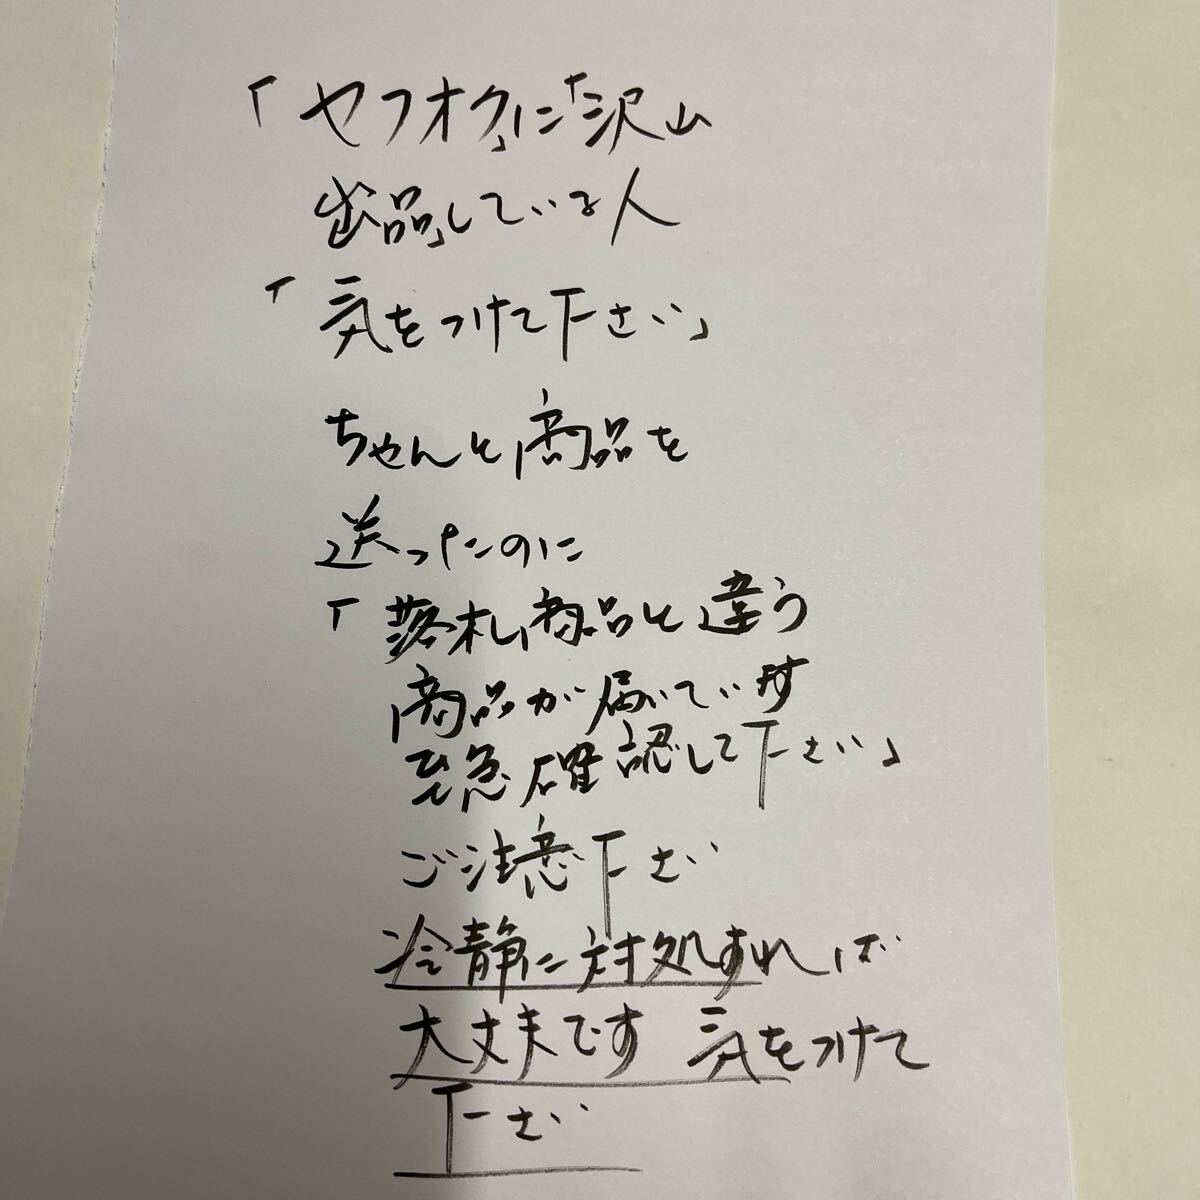 「ヤフオク」に「沢山
出品」している人
「気をつけて下さい」
ちゃんと商品を
送ったのに
「落札商品と違う
商品が届いています
至急確認して下さい」
ご注意下さい
冷静に対処すれば
大丈夫です 気をつけて
下さい